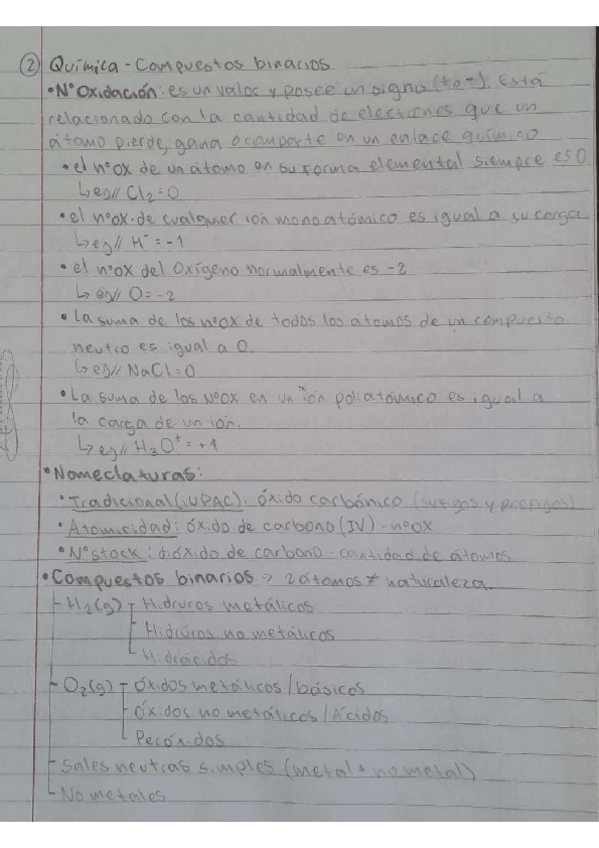 ② Química - Compuestos binarios
• N° Oxidación: es un valor y posee un signo (+ o -). Está
relacionado con la cantidad de electrones que un
átomo pierde, gana o comparte en un enlace químico
• el n°ox de un átomo en su forma elemental siempre es 0
↳ eg// Cl₂ = 0
• el n°ox. de cualquier ión monoatómico es igual a su carga
↳ eg// H⁻ = -1
• el n°ox del Oxígeno normalmente es -2
↳ eg// O = -2
• La suma de los n°ox de todos los átomos de un compuesto
neutro es igual a 0.
↳ eg// NaCl = 0
• La suma de los N°ox en un ión poliatómico es igual a
la carga de un ión.
↳ eg// H₃O⁺ = +1
• Nomeclaturas:
• Tradicional (iUPAC): óxido carbónico (sufijos y prefijos)
• Atomicidad: óxido de carbono (IV) - n°ox
• N° stock: dióxido de carbono - cantidad de átomos
• Compuestos binarios → 2 átomos ≠ naturaleza.
H₂(g) Hidruros metálicos
Hidruros no metálicos
Hidrácidos
O₂(g) Óxidos metálicos / básicos
Óxidos no metálicos / Ácidos
Peróxidos
Sales neutras simples (metal + no metal)
No metales